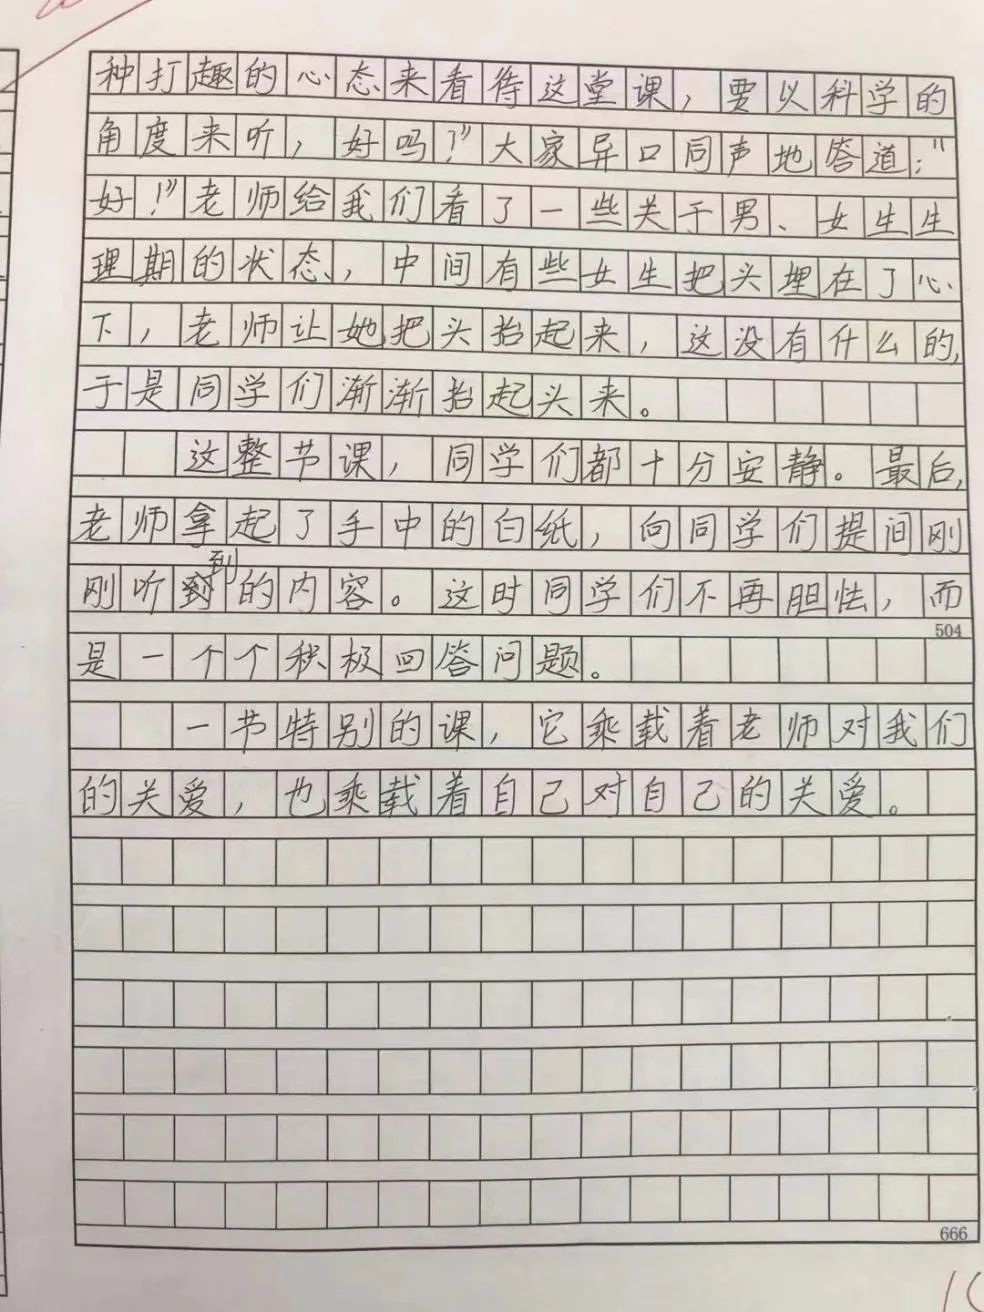 种打趣的心态来看待这堂课，要以科学的
角度来听，好吗？”大家异口同声地答道：“
好！”老师给我们看了一些关于男、女生生
理期的状态，中间有些女生把头埋在了心
下，老师让她把头抬起来，这没有什么的，
于是同学们渐渐抬起头来。
这整节课，同学们都十分安静。最后，
老师拿起了手中的白纸，向同学们提问刚
刚听到的内容。这时同学们不再胆怯，而
504
是一个个积极回答问题。
一节特别的课，它乘载着老师对我们
的关爱，也乘载着自己对自己的关爱。
666